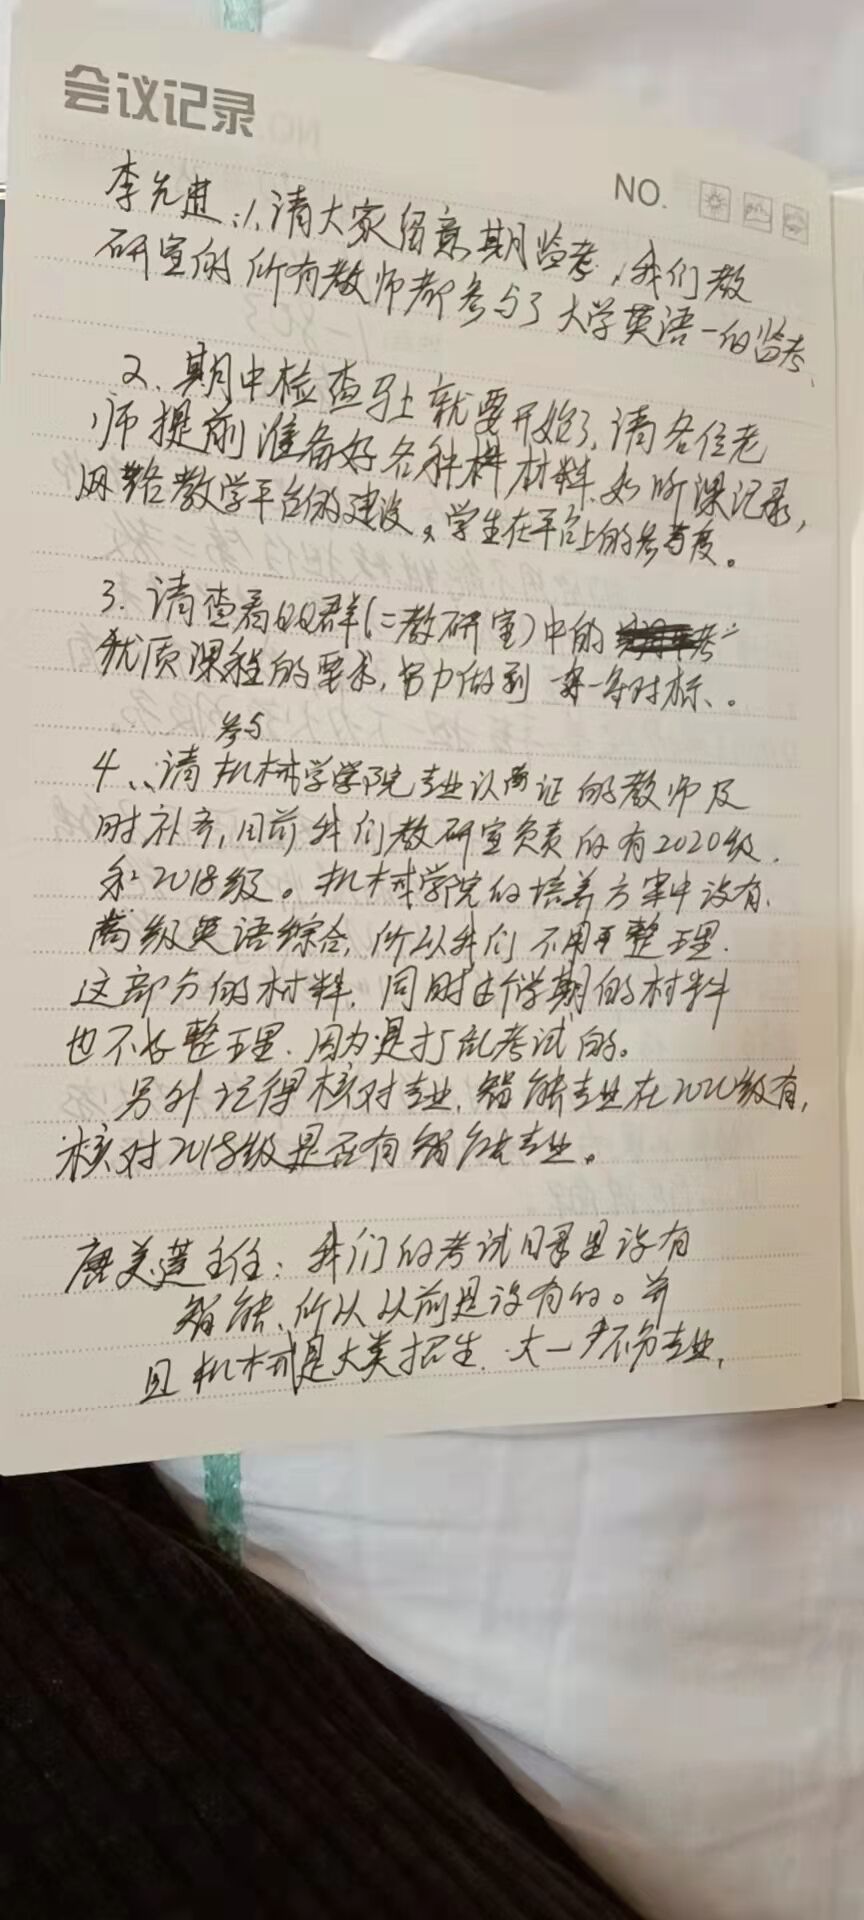 会议记录
NO.
李先进：1、请大家留意期监考，我们教
研室的所有教师都参与了大学英语一的监考、
2、期中检查马上就要开始了，请各位老
师提前准备好各种材料、如听课记录，
网络教学平台的建设。学生在平台上的参与度。
3、请查看QQ群(二教研室)中的
优质课程的要求，努力做到一一对标、。
参与
4、请机械学学院专业认证的教师及
时补齐，目前我们教研室负责的有2020级、
和2018级。机械学院的培养方案中没有、
高级英语综合，所以我们不用再整理、
这部分的材料，同时由学期的材料
也不好整理、因为是打乱考试的。
另外记得核对专业，智能专业在2020级有，
核对2018级是否有智能专业。
唐美莲主任：我们的考试目录里没有
智能、所以以前是没有的。并
且机械是大类招生、大一不分专业，